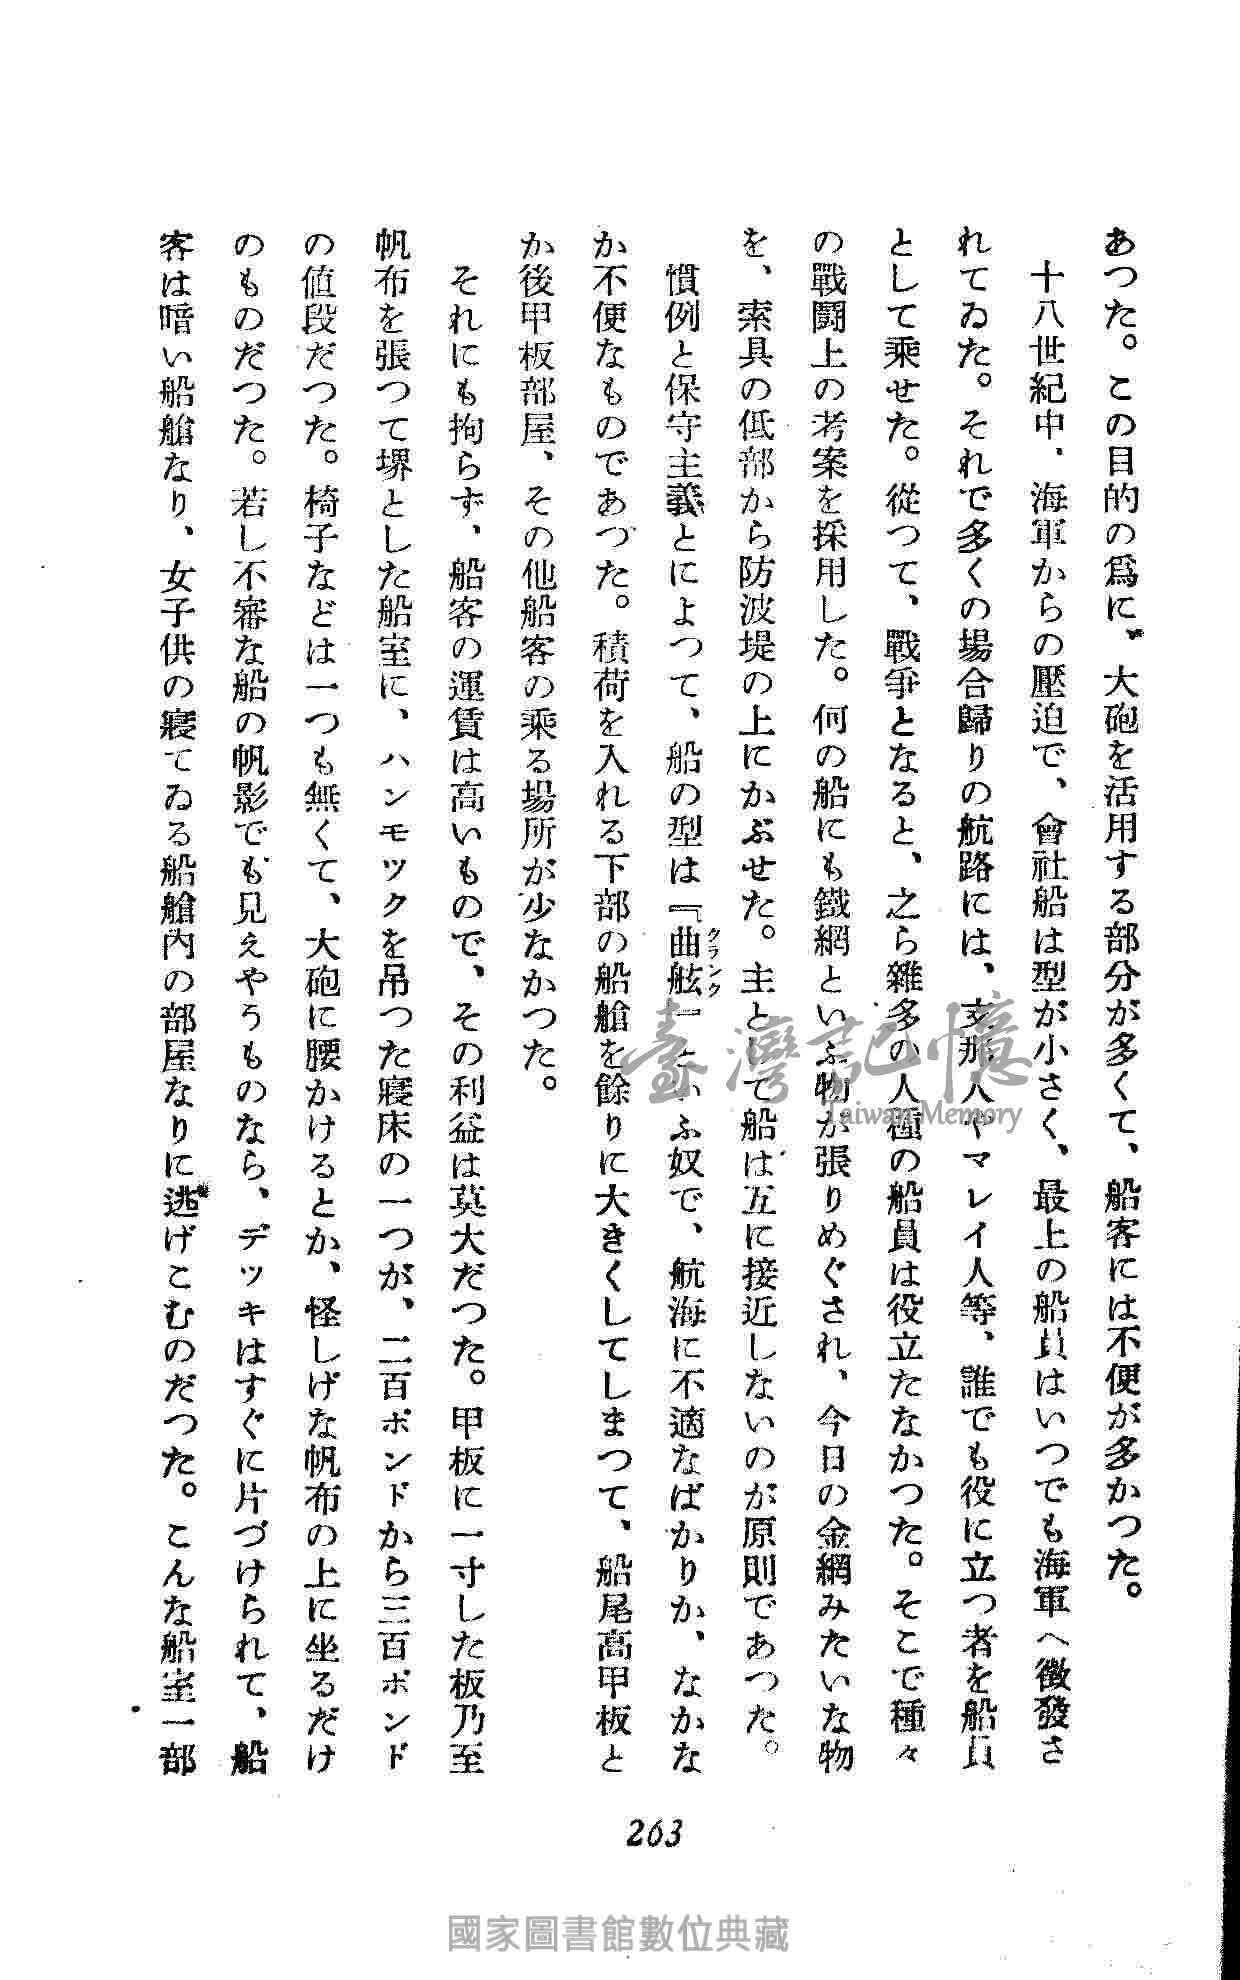 あつた。この目的の爲に、大砲を活用する部分が多くて、船客には不便が多かつた。
十八世紀中、海軍からの壓迫で、會社船は型が小さく、最上の船員はいつでも海軍へ徴發さ
れてゐた。それで多くの場合歸りの航路には、支那人やマレイ人等、誰でも役に立つ者を船員
として乘せた。從つて、戰爭となると、之ら雜多の人種の船員は役立たなかつた。そこで種々
の戰闘上の考案を採用した。何の船にも鐵網といふ物が張りめぐされ、今日の金網みたいな物
を、索具の低部から防波堤の上にかぶせた。主として船は互に接近しないのが原則であつた。
慣例と保守主義とによつて、船の型は『曲舷』といふ奴で、航海に不適なばかりか、なかな
クランク
か不便なものであづた。積荷を入れる下部の船艙を餘りに大きくしてしまつて、船尾高甲板と
か後甲板部屋、その他船客の乘る場所が少なかつた。
それにも拘らず、船客の運賃は高いもので、その利益は莫大だつた。甲板に一寸した板乃至
帆布を張つて堺とした船室に、ハンモツクを吊つた寢床の一つが、二百ポンドから三百ポンド
の値段だつた。椅子などは一つも無くて、大砲に腰かけるとか、怪しげな帆布の上に坐るだけ
のものだつた。若し不審な船の帆影でも見えやうものなら、デツキはすぐに片づけられて、船
客は暗い船艙なり、女子供の寢てゐる船艙内の部屋なりに逃げこむのだつた。こんな船室一部
263
臺灣記憶
Taiwan Memory
國家圖書館數位典藏